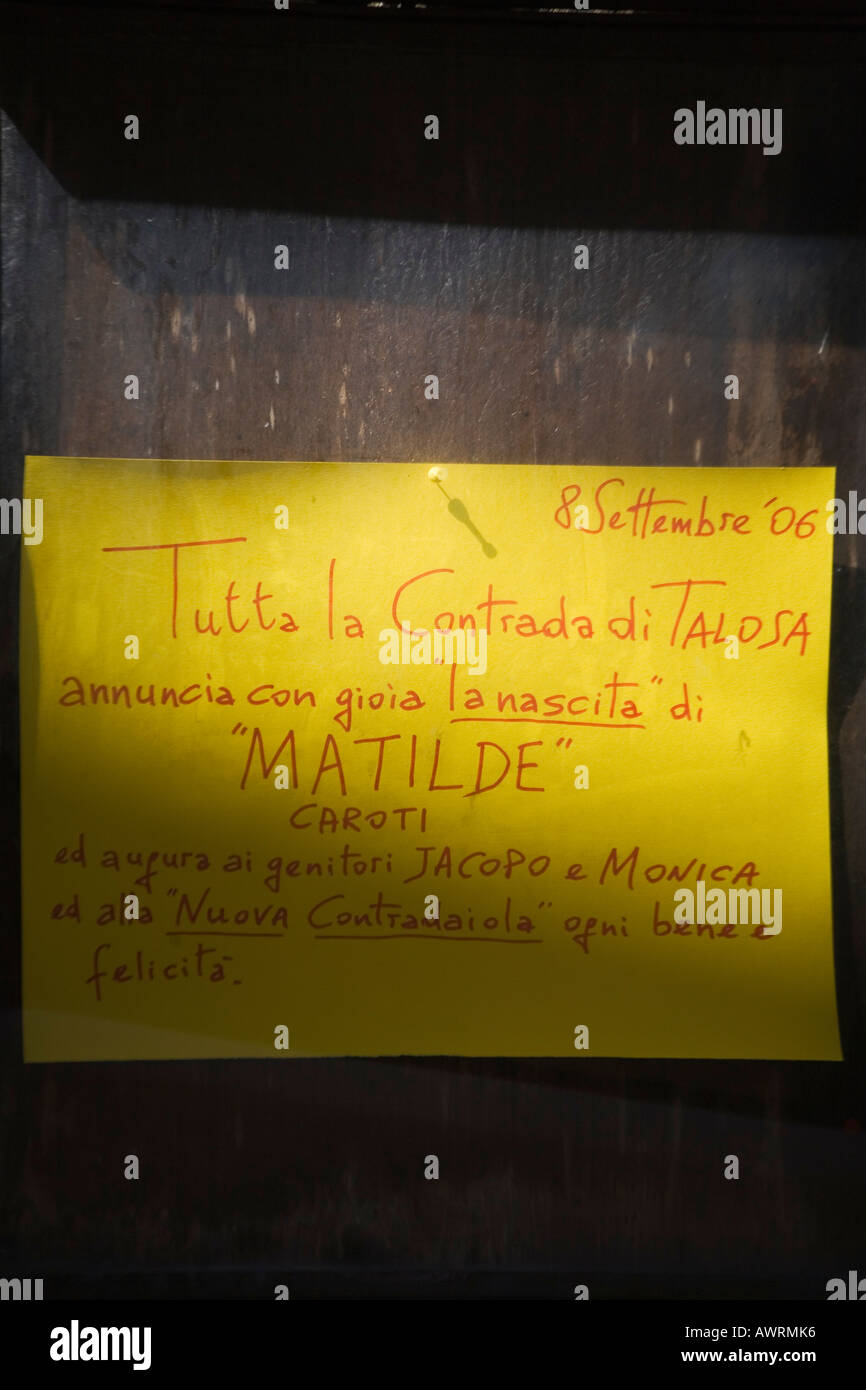 8 Settembre '06
Tutta la Contrada di TALOSA
annuncia con gioia "la nascita" di
"MATILDE"
CAROTI
ed augura ai genitori JACOPO e MONICA
ed alla "NUOVA Contradaiola" ogni bene e
felicità.
alamy
Image ID: AWRMK6
www.alamy.com